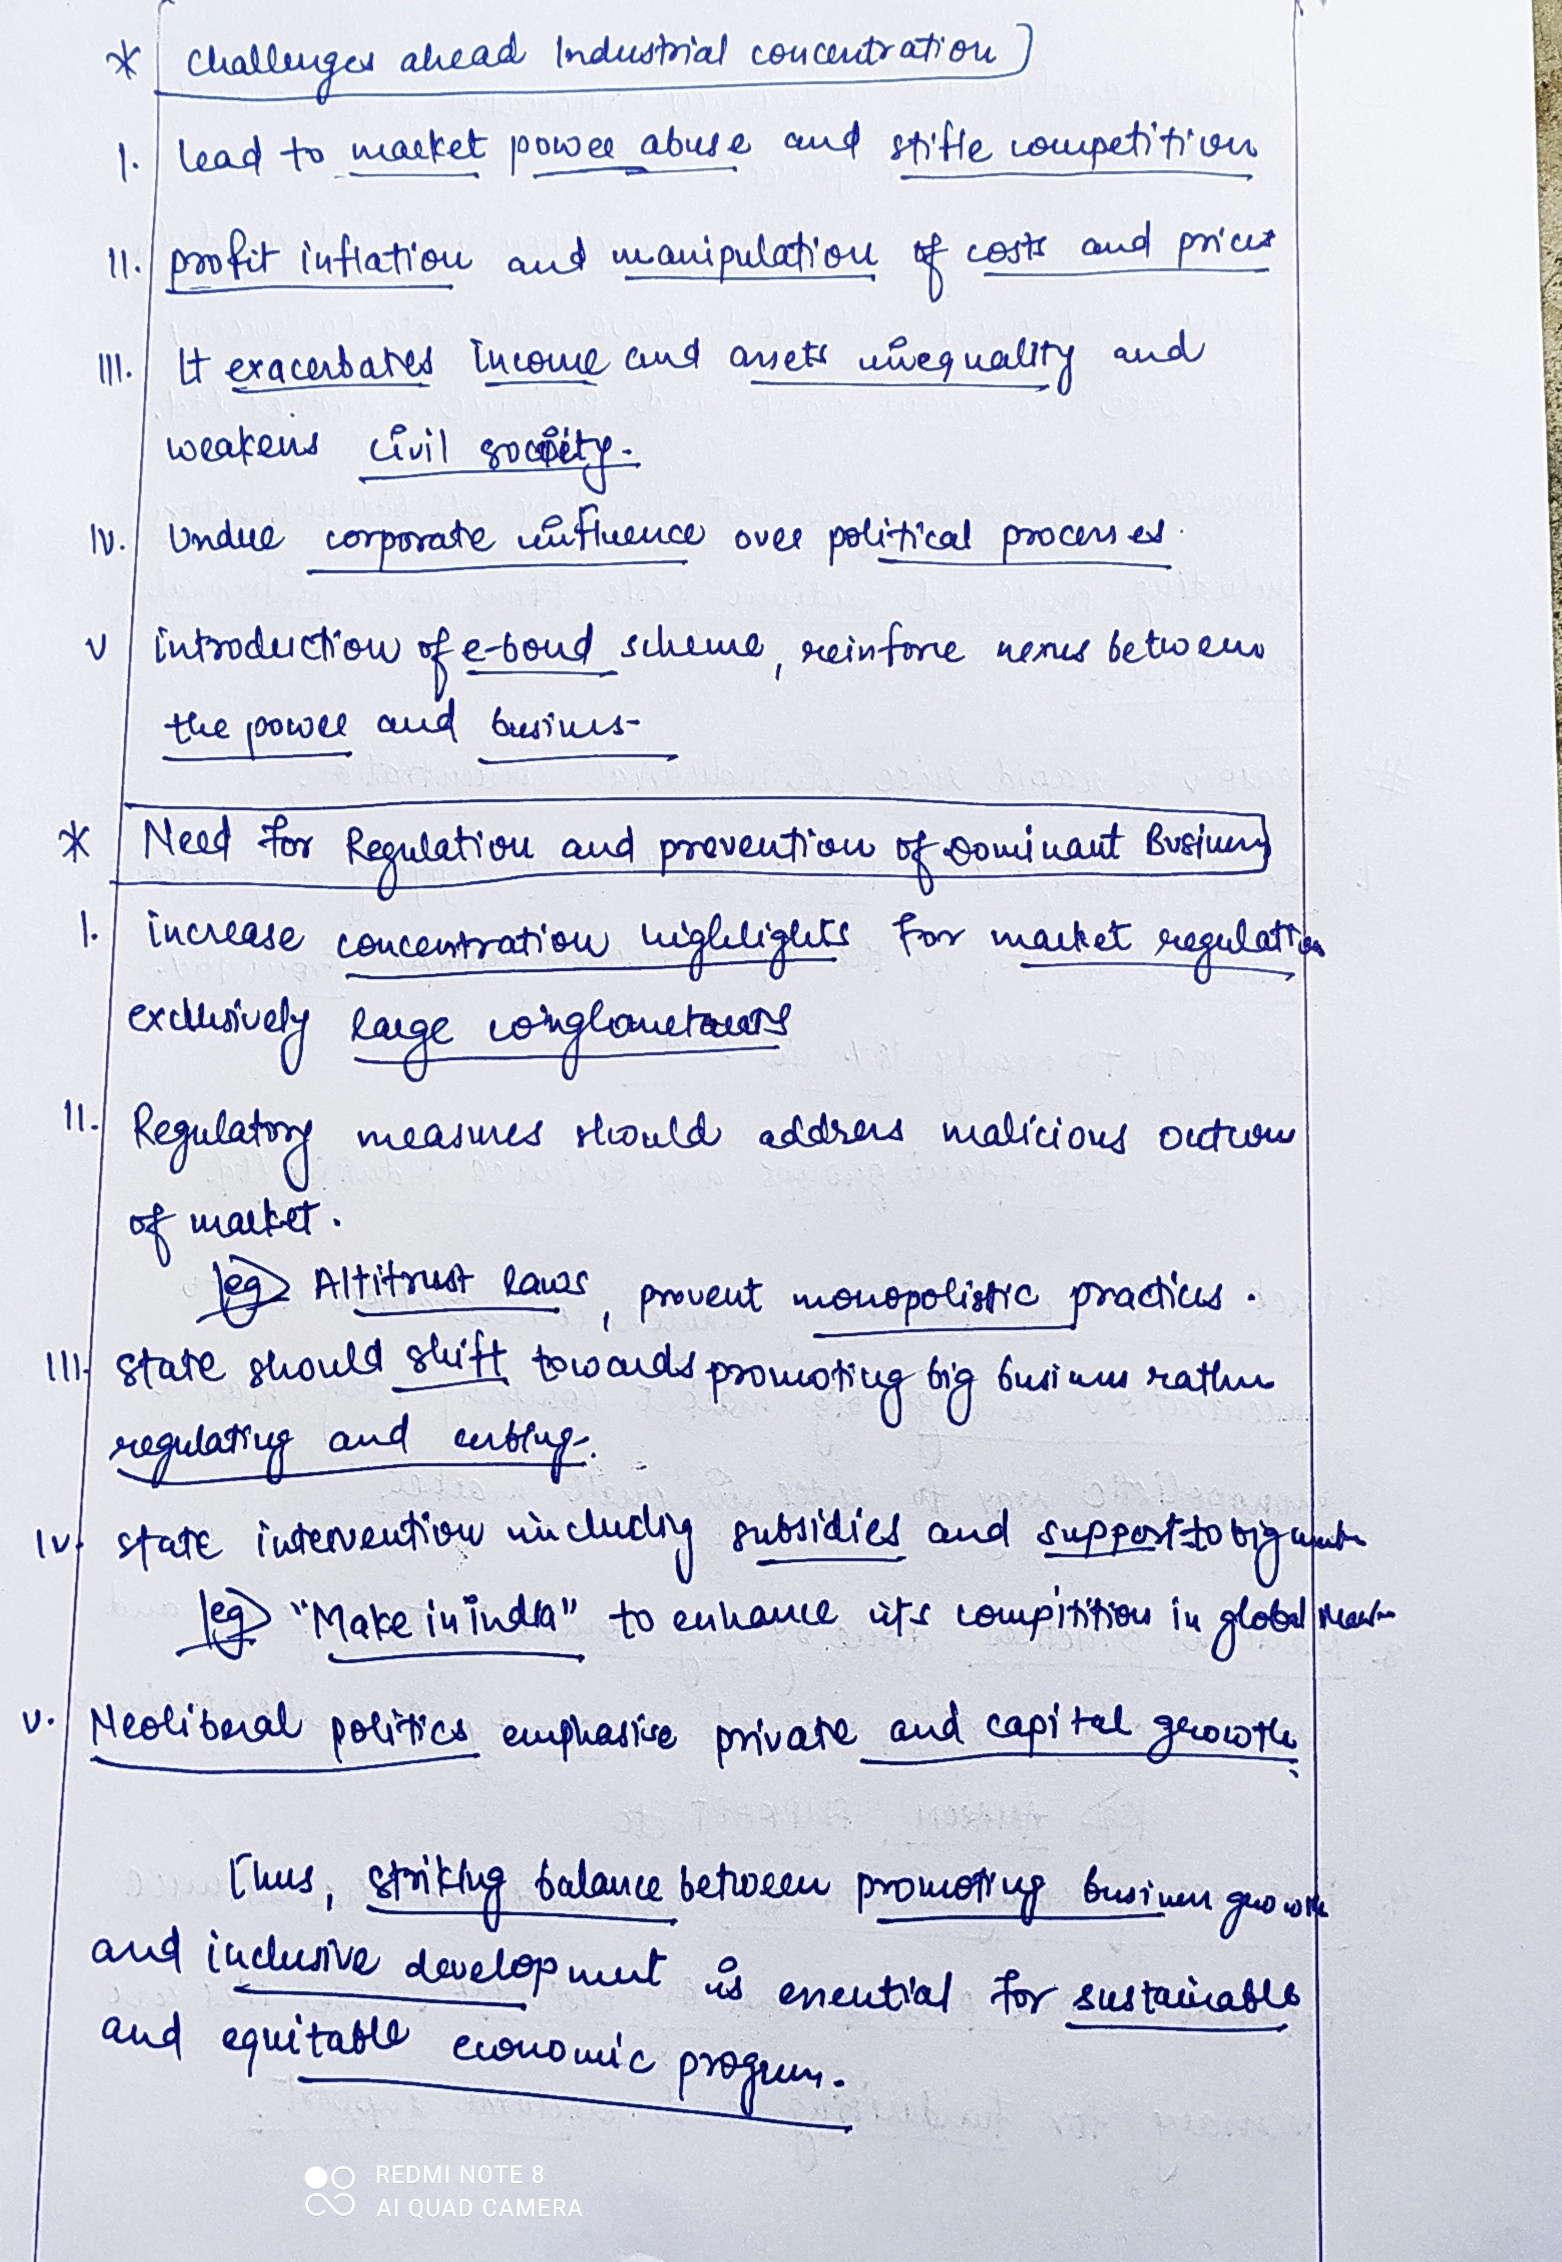 * Challenges ahead Industrial concentration
I. lead to market power abuse and stifle competition
II. profit inflation and manipulation of costs and prices
III. It exacerbates income and assets inequality and
weakens civil society.
IV. Undue corporate influence over political processes.
V introduction of e-bond scheme, reinforce nexus between
the power and business
* Need for Regulation and prevention of Dominant Business
I. increase concentration highlights for market regulation
exclusively large
II. Regulatory measures should address malicious outcome
of market.
eg Altitrust laws, prevent monopolistic practices.
III. State should shift towards promoting big business rather
regulating and curbing.
IV. State intervention including subsidies and support to big
eg "Make in india" to enhance its compitition in global
V. Neoliberal politics emphasise private and capital growth.
Thus, striking balance between promoting business growth
and inclusive development is essential for sustainable
and equitable economic progress.
REDMI NOTE 8
AI QUAD CAMERA